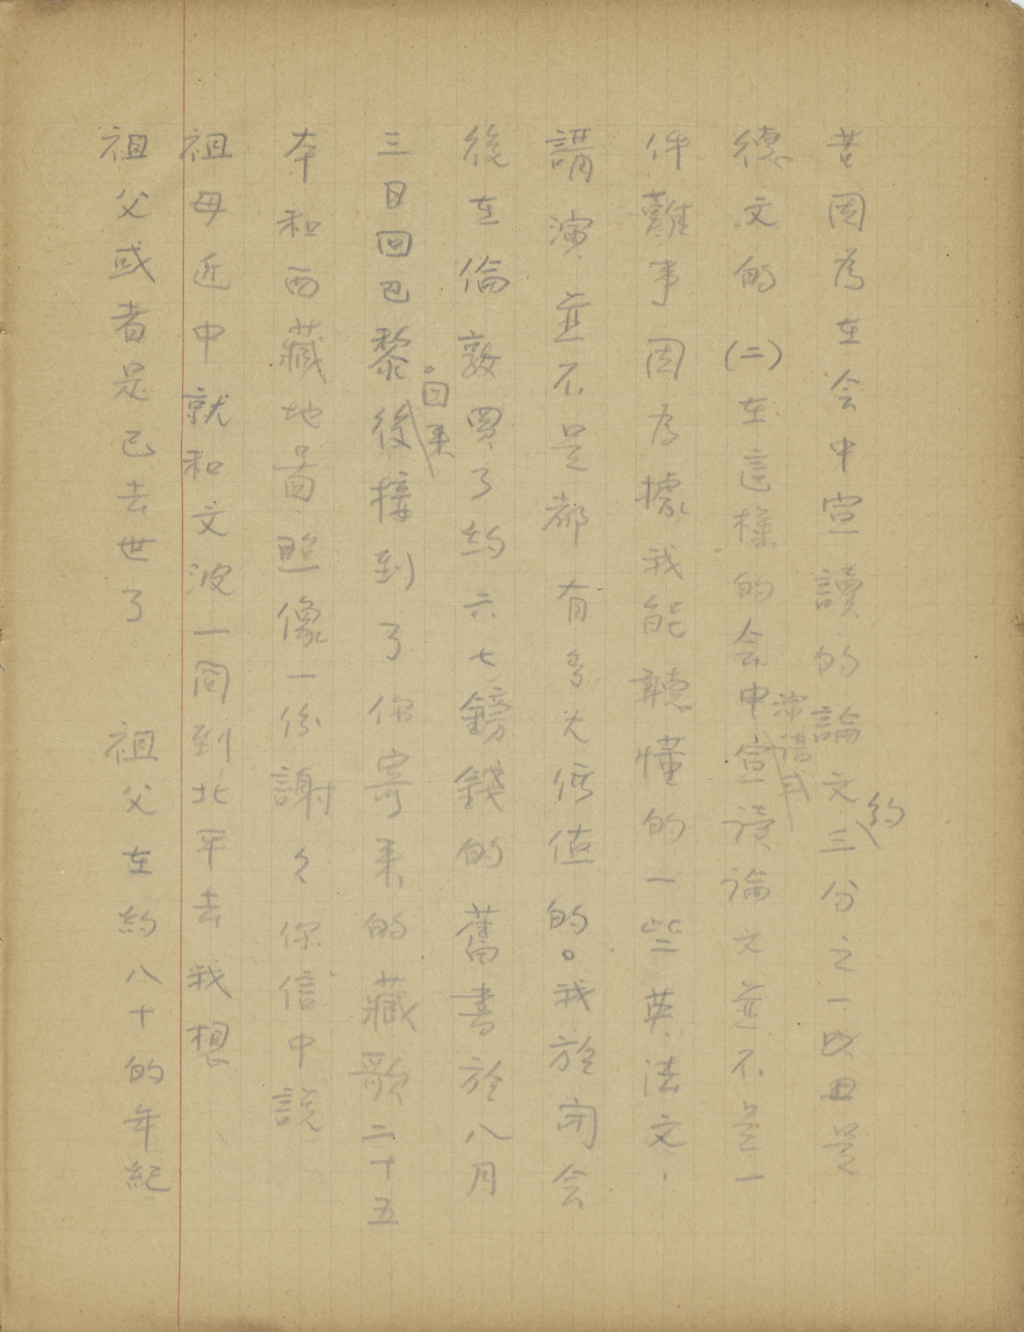 苦因為在会中宣讀的論文約三分之一以且是
德文的(二)在這樣的会中演講式宣讀論文並不是一
件難事因為據我能聽懂的一些英法文，
講演並不是都有多大價值的。我於開会
後在倫敦買了約六七鎊錢的舊書於八月
三日回巴黎。回來後接到了你寄來的藏歌二十五
本和西藏地圖照像一份謝々你信中說
祖母近中就和文波一同到北平去我想、
祖父或者是已去世了 祖父在約八十的年紀